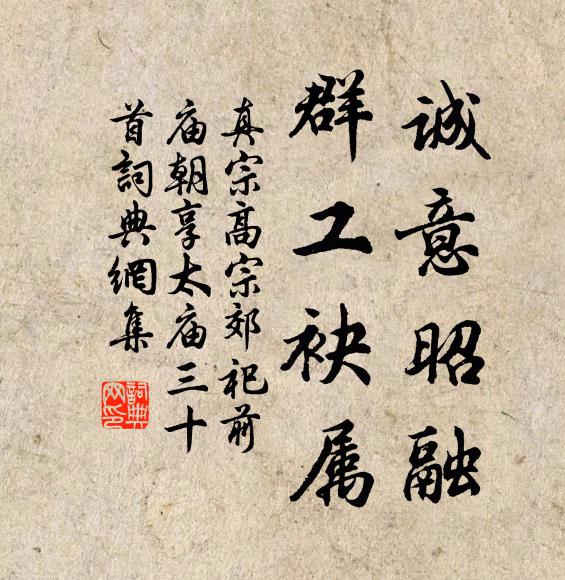 誠意昭融
群工袂属
真宗高宗郊祀前
庙朝享太庙三十
首詞典網集
詞典网印